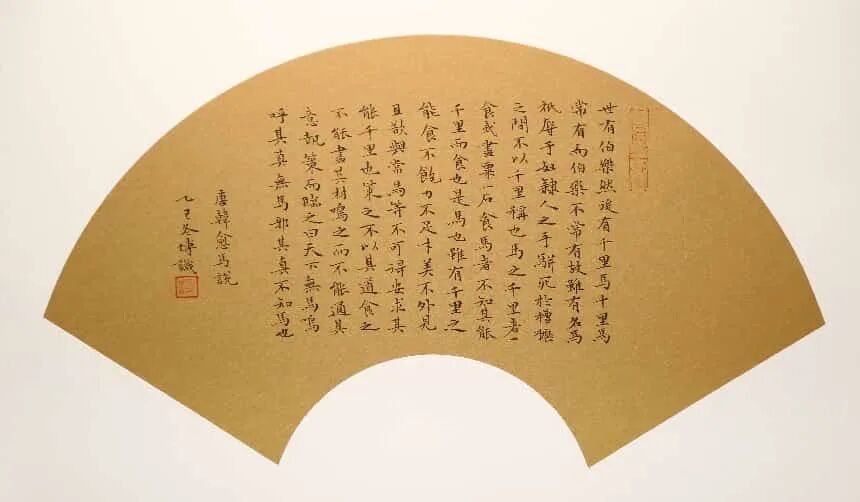 世有伯樂然後有千里馬千里馬
常有而伯樂不常有故雖有名馬
祇辱于奴隸人之手駢死於槽櫪
之間不以千里稱也馬之千里者一
食或盡粟一石食馬者不知其能
千里而食也是馬也雖有千里之
能食不飽力不足才美不外見
且欲與常馬等不可得安求其
能千里也策之不以其道食之
不能盡其材鳴之而不能通其
意執策而臨之曰天下無馬嗚
呼其真無馬邪其真不知馬也
唐韓愈馬說
乙巳冬博